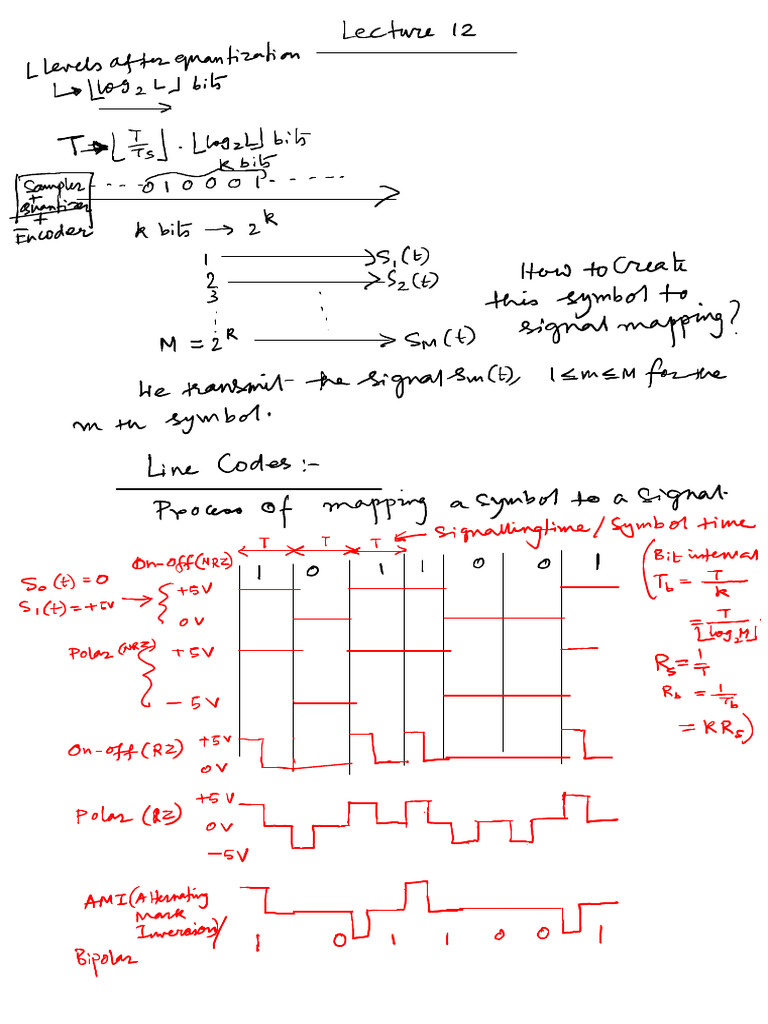 Lecture 12
L levels after quantization
↳ ⌊log₂ L⌋ bits
T → ⌊T/Ts⌋ · ⌊log₂L⌋ bits
k bits
Sampler + Quantizer + Encoder
- - - - 0 1 0 0 0 1 - - - - - -
k bits → 2^k
1 → S₁(t)
2 → S₂(t)
3
M = 2^k → S_M(t)
How to Create
this symbol to
signal mapping?
We transmit the signal Sm(t), 1≤m≤M for the
m th symbol.
Line Codes :-
Process of mapping a symbol to a signal.
← Signalling time / Symbol time
T T T
On-off (NRZ)
1 0 1 1 0 0 1
S₀(t) = 0
S₁(t) = +5V →
+5V
0V
Polar (NRZ)
+5V
-5V
(Bit interval
T_b = T/k
= T/⌊log₂M⌋
R_s = 1/T
R_b = 1/T_b
= k R_s)
On-off (RZ)
+5V
0V
Polar (RZ)
+5V
0V
-5V
AMI (Alternating
Mark
Inversion)/
Bipolar
1 0 1 1 0 0 1